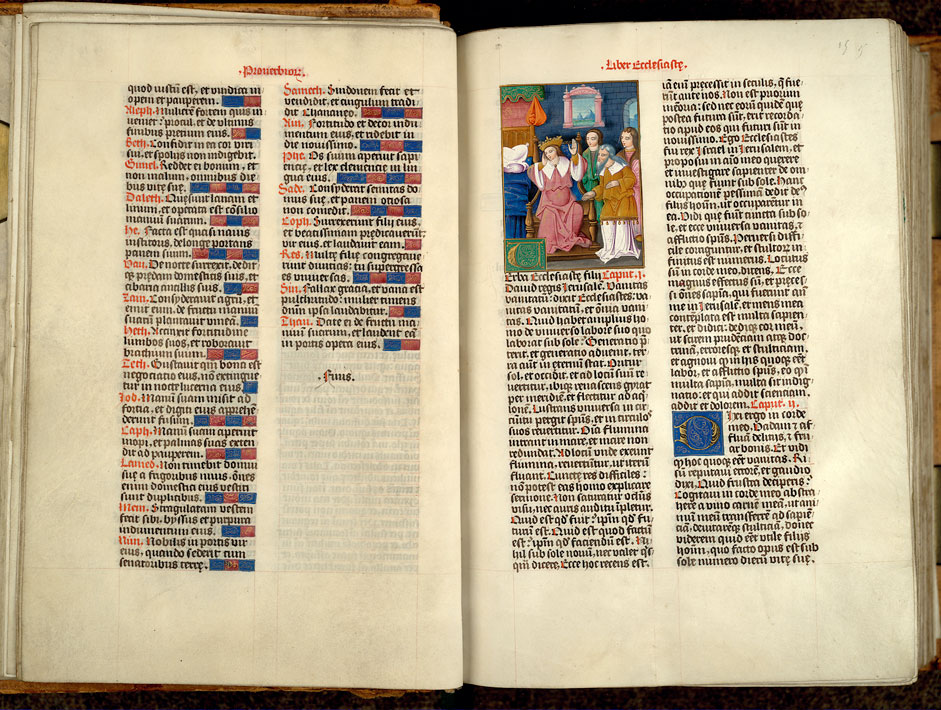 ·Prouerbiorũ·
quod iustũ est, et vindica in
opem et pauperem.
Aleph. Mulierẽ fortem quis in
ueniet? procul, et de vltimis
finibus precium eius.
Beth. Confidit in ea cor viri
sui, et spoliis non indigebit.
Gimel. Reddet ei bonum, et
non malum, omnibus die
bus vitę suę.
Daleth. Quęsiuit lanam et
linum, et operata est cõsilio
manuum suarum.
He. Facta est quasi nauis
institoris, de longe portans
panem suum.
Vau. De nocte surrexit, dedit
qȝ predam domesticis suis, et
cibaria ancillis suis.
Zain. Considerauit agrũ, et
emit eum, de fructu manuũ
suarũ plantauit vineã.
Heth. Accinxit fortitudine
lumbos suos, et roborauit
brachium suum.
Teth. Gustauit qȝ bona est
negociatio eius, nõ extingue
tur in nocte lucerna eius.
Iod. Manũ suam misit ad
fortia, et digiti eius apprehẽ
derunt fusum.
Caph. Manũ suam aperuit
inopi, et palmas suas exten
dit ad pauperem.
Lamed. Non timebit domui
suę a frigoribus niuis, oẽs
enim domestici eius vestiti
sunt duplicibus.
Mem. Stragulatam vestem
fecit sibi, byssus et purpura
indumentum eius.
Nun. Nobilis in portis vir
eius, quando sederit cum
senatoribus terrę.
Samech. Sindonem fecit et
vendidit, et cingulum tradi
dit Chananeo.
Ain. Fortitudo et decor indu
mentum eius, et ridebit in
die nouissimo.
Phe. Os suum aperuit sapi
encię, et lex clemencię in lin
gua eius.
Sade. Considerat semitas do
mus suę, et panem ociosa
non comedit.
Coph. Surrexerunt filii eius,
et beatissimam predicauerũt,
vir eius, et laudauit eam.
Res. Multę filię congregaue
runt diuitias: tu supergressa
es vniuersas.
Sin. Fallax gratia, et vana est
pulchritudo: mulier timens
dñm ipsa laudabitur.
Thau. Date ei de fructu ma
nuum suarum, et laudent eã
in portis opera eius.
·Finis.·
·Liber Ecclesiastę·
V
Erba Ecclesiastę filij Caput. I.
Dauid regis Ierusalẽ. Vanitas
vanitatũ: dixit Ecclesiastes: va
nitas vanitatũ, et õnia vani
tas. Quid habet amplius ho
mo de vniuerso labore suo quo
laborat sub sole? Generatio p̃
terit, et generatio aduenit, ter
ra aũt in eternũ stat. Oritur
sol, et occidit, et ad locũ suũ re
uertitur, ibiqȝ renascens gyrat
per meridiẽ, et flectitur ad aqi
lonẽ. Lustrans vniuersa in cir
cuitu pergit spũs, et in circulos
suos reuertitur. Oĩa flumina
intrant in mare, et mare non
redundat. Ad locũ vnde exeunt
flumina, reuertuntur, ut iterũ
fluant. Cunctę res difficiles:
nõ potest eas homo explicare
sermone. Non saturatur oculus
visu, nec auris auditu ĩpletur.
Quid est qd fuit? ipsũ qd fu
turũ est. Quid est quod factũ
est? ipsũ qd faciendũ est. Ni
hil sub sole nouũ, nec valet qs
qȝ dicere, Ecce hoc recens est.
iã enĩ precessit in seculis, quę fue
rũt ante nos. Non est priorum
mẽoria: sed nec eorũ quidẽ quę
postea futura sũt, erit recorda
tio apud eos qui futuri sũt in
nouissimo. Ego Ecclesiastes
fui rex Israel in Ierusalem, et
proposui in aĩo meo querere
et inuestigare sapienter de om
nibꝰ quę fiunt sub sole. Hanc
occupationẽ pessimã dedit deꝰ
filiis hoĩm, ut occuparentur in
ea. Vidi quę fiũt cuncta sub so
le, et ecce vniuersa vanitas, et
afflictio spũs. Peruersi diffi
cile corriguntur, et stultorũ in
finitus est numerus. Locutus
sũ in corde meo, dicens, Ecce
magnus effectus sũ, et preces
si õnes sapiẽtia, qui fuerunt ante
me in Ierusalẽ, et mens mea
contẽplata est multa sapien
ter, et didici: dediqȝ cor meũ,
ut scirem prudẽciam atqȝ doc
trinã, erroresqȝ et stulticiam,
et agnoui qȝ in his quoqȝ eẽt
labor, et afflictio spũs, eo qȝ ĩ
multa sapiẽtia, multa sit indig
natio: et qui addit scienciam,
addit et dolorem. Caput. II.
D
Ixi ergo in corde
meo, Vadam et af
fluã deliciis, et fru
ar bonis. Et vidi
qȝ hoc quoqȝ eẽt vanitas. Ri
sũ reputaui errorẽ, et gaudio
dixi, Quid frustra deciperis?
Cogitaui in corde meo abstra
here a vino carnẽ meã, ut ani
mũ meũ transferrẽ ad sapiẽ
tiã, deuitarẽqȝ stulticiã, donec
viderem quid eẽt vtile filiis
hoĩm, quo facto opus est sub
sole numero dierũ vitę suę.